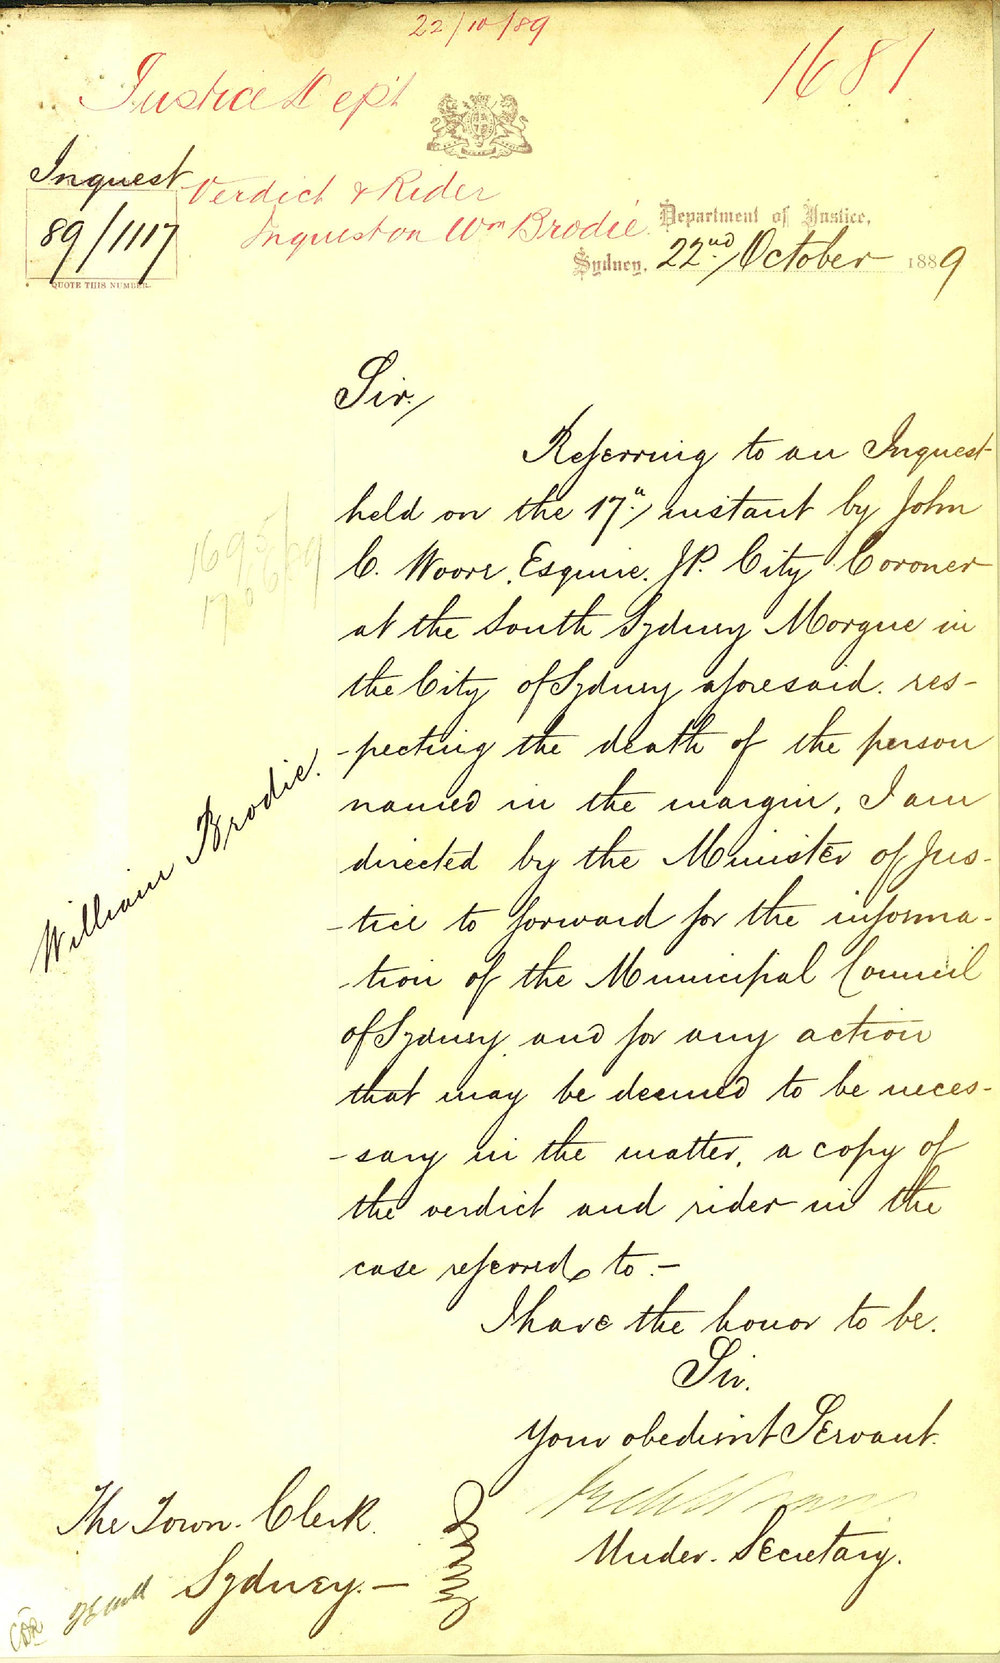 22/10/89
Justice Dept
1681
Inquest
89/1117
QUOTE THIS NUMBER.
Verdict & Rider
Inquest on Wm Brodie.
Department of Justice,
Sydney, 22nd October 1889
Sir,
Referring to an Inquest
held on the 17th instant by John
C. Woore, Esquire, J.P. City Coroner
at the South Sydney Morgue in
the City of Sydney aforesaid. res-
-pecting the death of the person
named in the margin, I am
directed by the Minister of Jus-
-tice to forward for the informa-
-tion of the Municipal Council
of Sydney, and for any action
that may be deemed to be neces-
-sary in the matter, a copy of
the verdict and rider in the
case referred to.—
William Brodie.
I have the honor to be.
Sir.
Your obedient Servant.
Under. Secretary.
The Town. Clerk.
Sydney.—